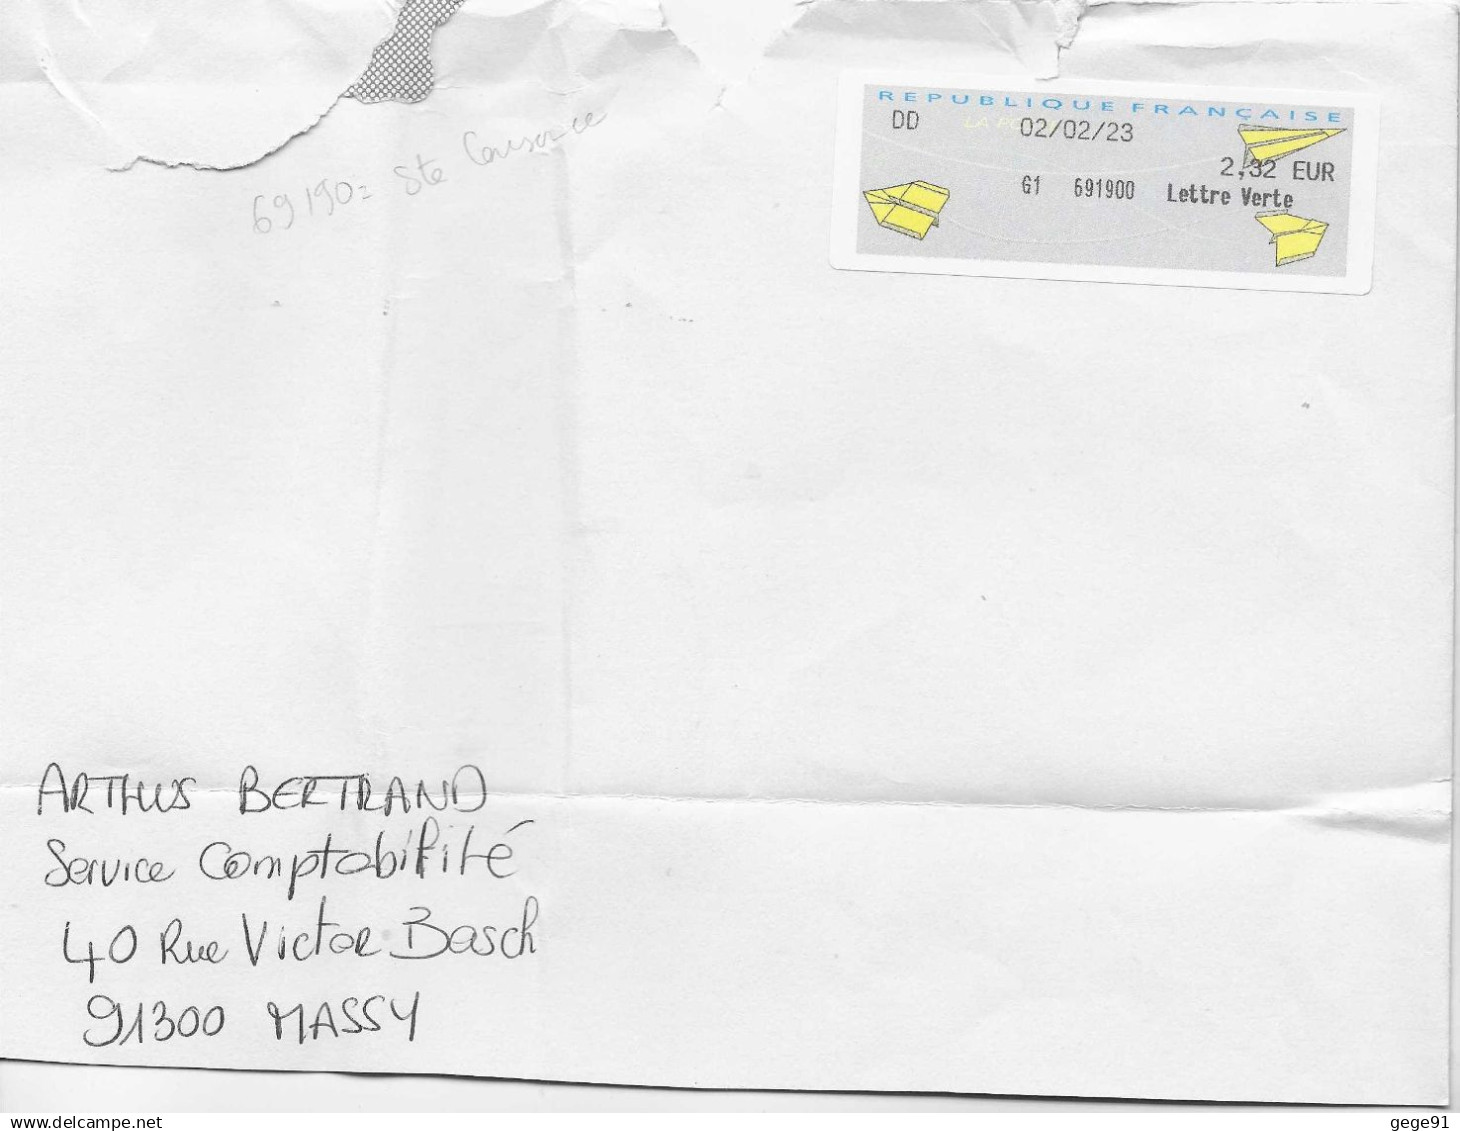 REPUBLIQUE FRANÇAISE
LA POSTE
DD 02/02/23
2,32 EUR
G1 691900 Lettre Verte
69190= Ste Consorce
ARTHUS BERTRAND
Service Comptabilité
40 Rue Victor Basch
91300 MASSY
gege91